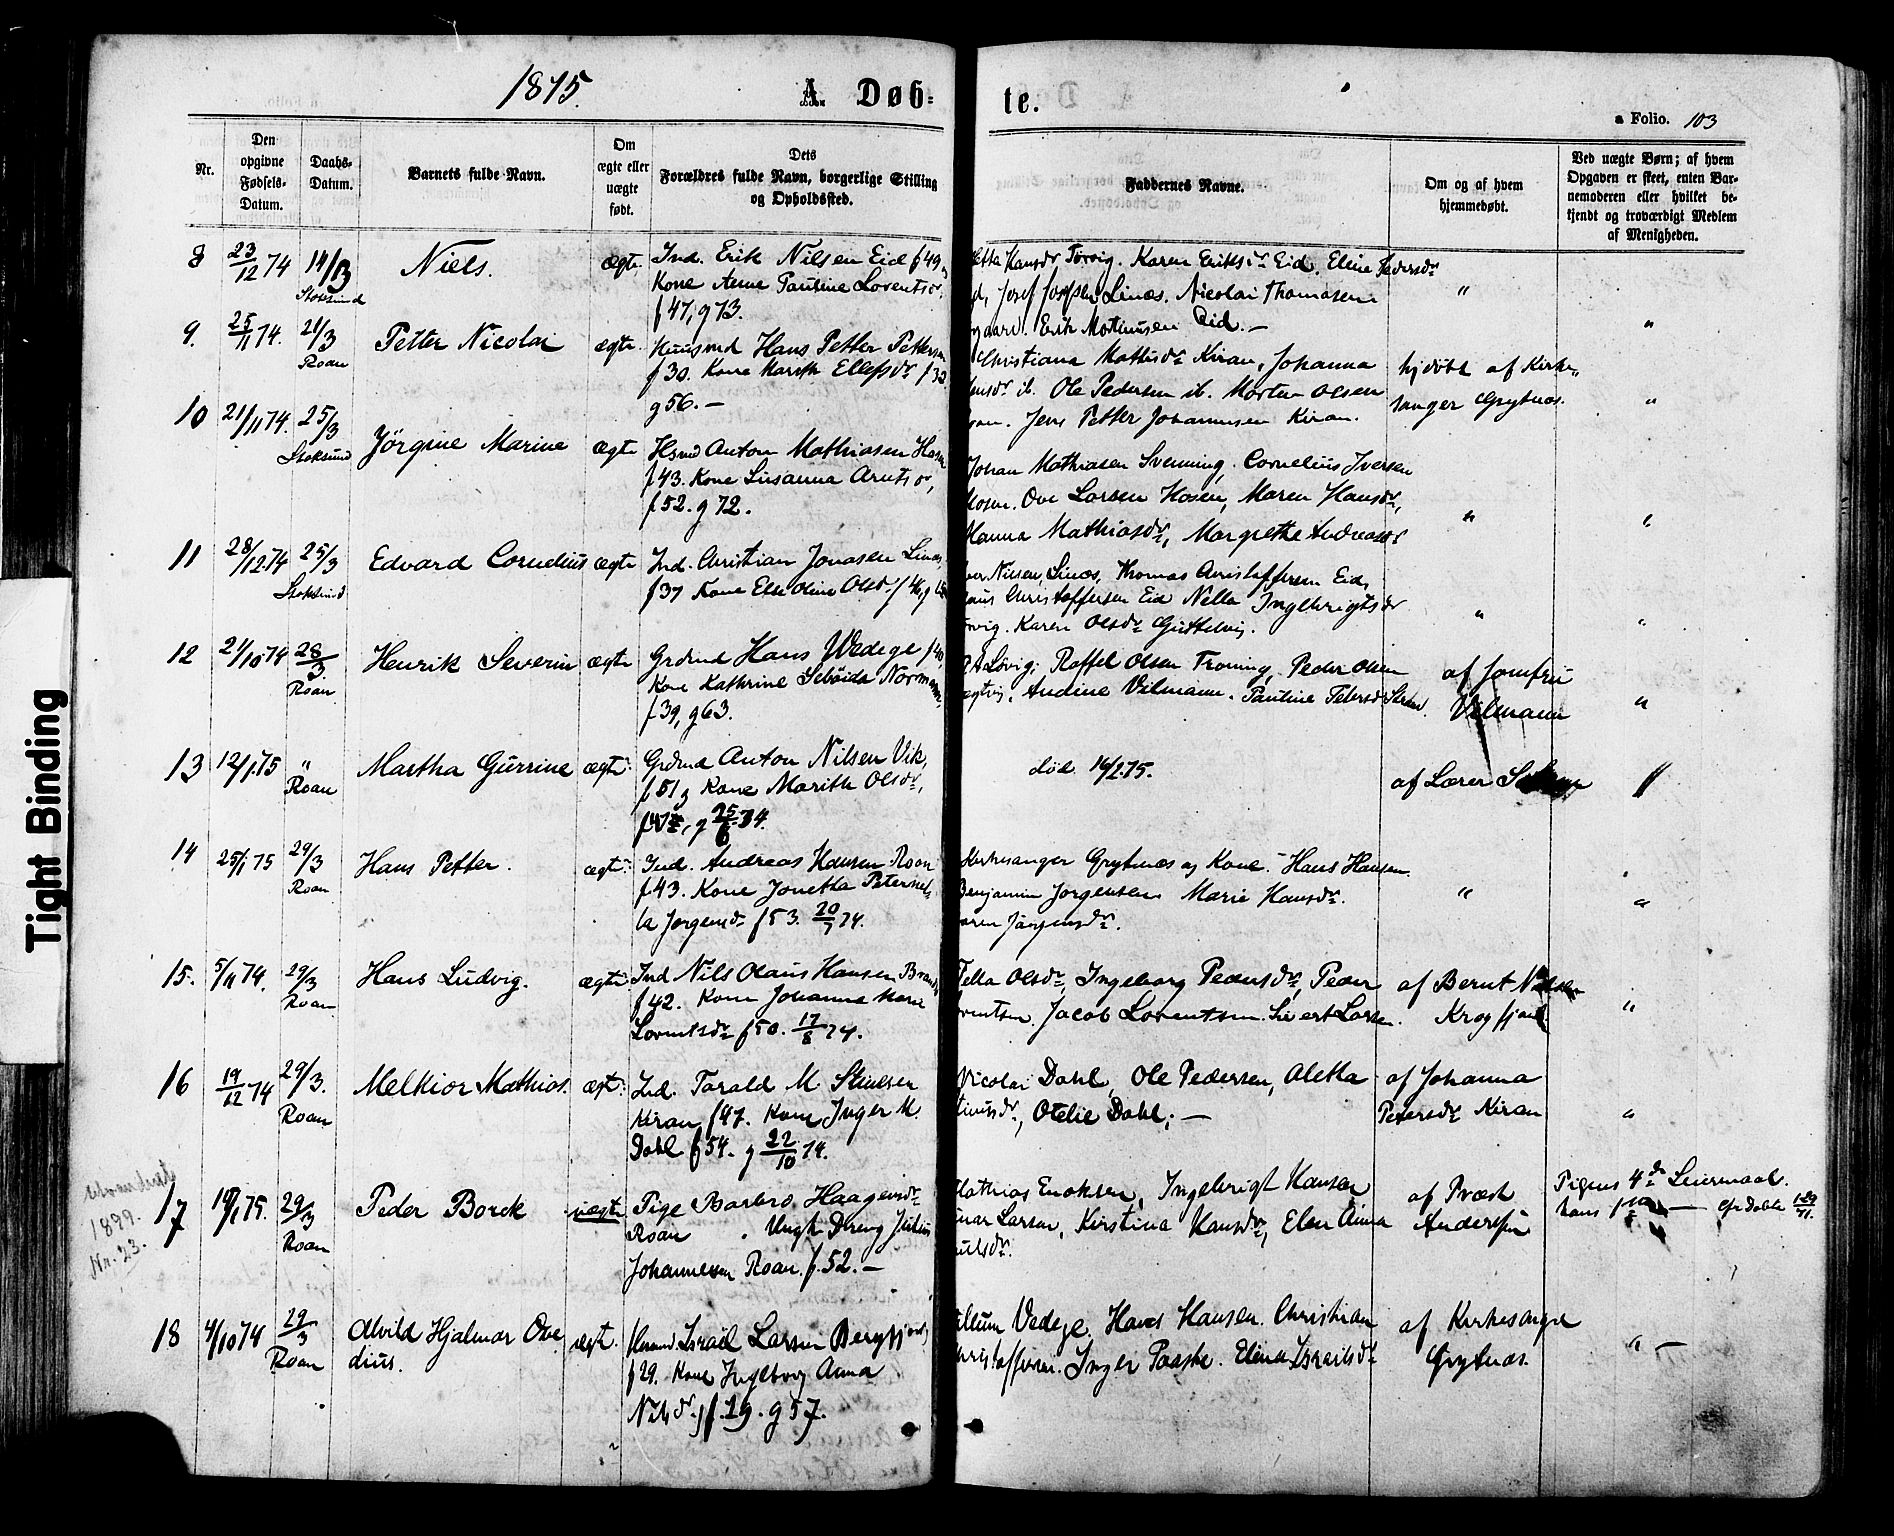 1875.
A. Døb-
te.
a Folio. 103
Nr.
Den opgivne Fødsels-Datum.
Daabs-Datum.
Barnets fulde Navn.
Om ægte eller uægte født.
Dets Forældres fulde Navn, borgerlige Stilling og Opholdssted.
Faddernes Navne.
Om og af hvem hjemmedøbt.
Ved uægte Børn; af hvem Opgaven er skeet, enten Barnemoderen eller hvilket bekjendt og troværdigt Medlem af Menigheden.
Tight Binding
8 23/12 74 14/3 Stoksund Niels. ægte
Ind. Erik Nilsen Eid f 49
Kone Anne Pauline Lorentsdr,
f 47, g 73.
Hansdr Tørvig. Karen Eriksdr Eid. Eline Pedersdr
Josef Josefsen Linæs. Nicolai Thomasen
Erik Mortinusen Eid. — "
9. 25/11 74. 21/3 Roan Petter Nicolai ægte
Huusmd Hans Petter Pettersen
f 30. Kone Marith Ellefsdr f 32
g 56. —
Christiana Mathisdr Kiran, Johanna
ib. Ole Pedersen ib. Morten Olsen
Jens Petter Johannesen Kiran.
hjdøbt af Kirke-
sanger Grytnæs. "
10 21/11 74. 25/3 Stoksund Jörgine Marine ægte
Hsmd Anton Mathiasen Hosen
f 43. Kone Susanna Arntsdr,
f 52. g 72.
Johan Mathiasen Svenning. Cornelius Iversen
Hosen. Ove Larsen Hosen, Maren Hansdr,
Hanna Mathiasdr, Margrethe Andreasdr
" "
11 28/12 74 25/3 Stoksund Edvard Cornelius ægte
Ind. Christian Jonasen Linæs
f 37 Kone Else Oline Olsdr f 46, g
Nilsen, Linæs, Thomas Christoffersen Eid,
Christoffersen Eid Nella Ingebrigtsdr
Karen Olsdr Guttelvig.
" "
12 21/10 74 28/3 Roan Henrik Severin ægte
Grdmd Hans Wedege f 40,
Kone Kathrine Sebôida Normann,
f 39, g 63.
Løvig; Raffel Olsen Troning, Peder Olsen
Andine Vilmann. Pauline Petersdr
af Jomfru
Vilmann "
13 12/1 75 " Roan Martha Gurrine ægte
Grdmd Anton Nilsen Vik,
f 51, Kone Marith Olsdr,
død 16/2 75.
af Lærer
14 25/1 75 29/3 Roan Hans Petter. ægte
Ind. Andreas Hansen Roan
f 43. Kone Jonetta Peternel-
la Jörgensdr f 53. 20/7 74.
Kirkesanger Grytnæs og Kone — Hans Hansen
Benjamin Jorgensen Marie Hansdr.
Jörgensdr.
" "
15. 5/11 74. 29/3 Roan Hans Ludvig. ægte
Ind Nils Olaus Hansen
f 42. Kone Johanna Marie
Lorentsdr f 50. 17/8 74.
Olsdr, Ingeborg Pedersdr, Peder
Jacob Lorentsen. Sivert Larsen.
af Bernt Nilsen
Krogfjord "
16 19/12 74 29/3. Roan Melkior Mathias. ægte
Ind. Tarald M. Steensen
Kiran f 47. Kone Inger M.
Dahl f 54. g 22/10 74.
Nicolai Dahl, Ole Pedersen, Aletta
Otelie Dahl; —
af Johanna
Petersdr Kiran "
1899.
Nr. 23.
17 29/3 Roan Peder Borck uægte
Pige Barbro Haagensdr
Roan. Ungk Dreng Julius
Johannesen Roan. f. 52. —
Mathias Enoksen, Ingebrigt Hansen
Larsen, Kirstina Hansdr, Elen Anna
af Præst
Anderssen
Pigens 4de Leiermaal.
hans 1ste —
18 4/10 74 29/3 Roan Alvild Hjalmar Ove
dius. ægt.
Husmd. Israël Larsen Bergfjord,
f 29. Kone Ingeborg Anna
Nilsdr, f. 29. g 57.
Vedege. Hans Hansen. Christian
Inger Paaske. Elina Israelsdr
af Kirkesanger
Grytnæs. " —